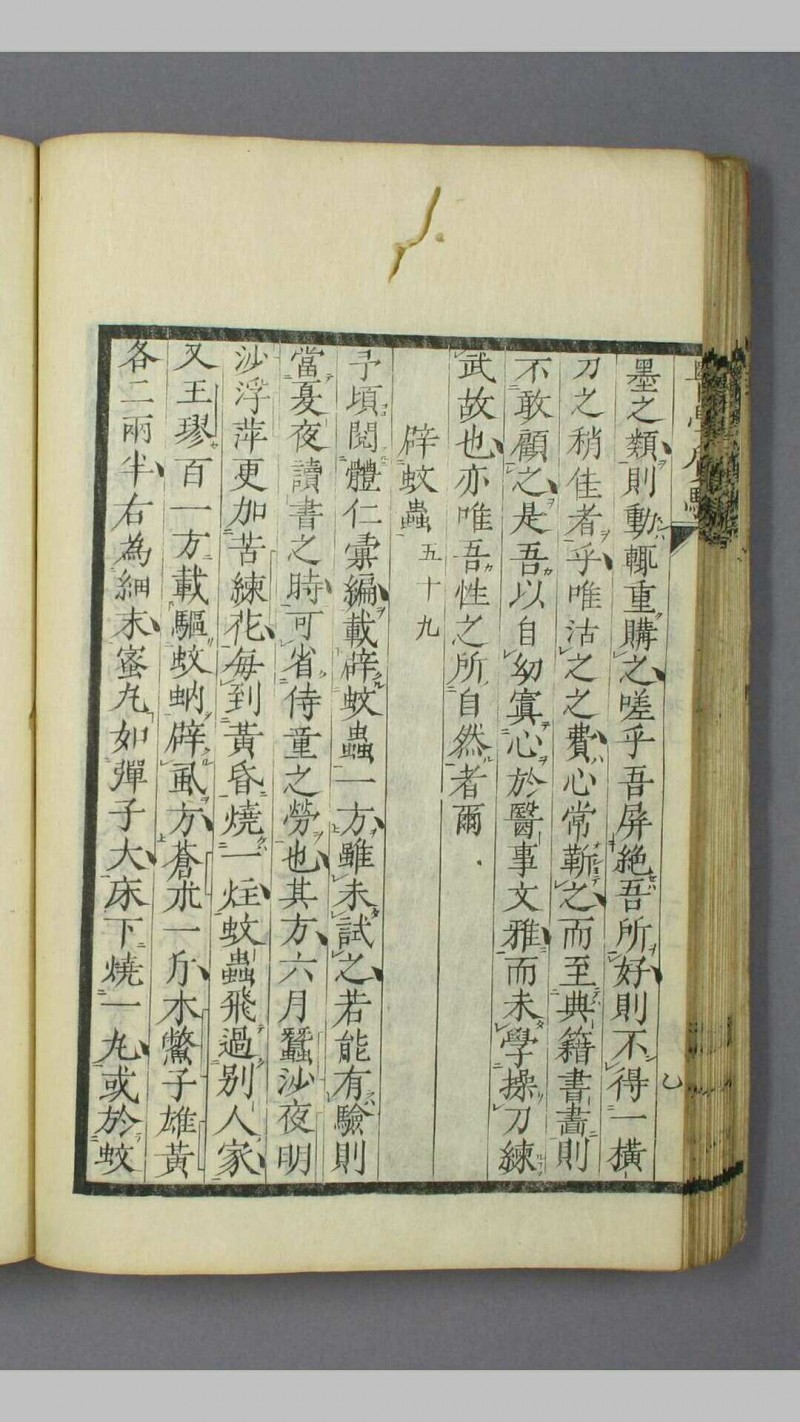 墨之類則動輒重購之嗟乎吾屏絶吾所好則不得一橫
刀之稍佳者乎唯沽之之費心常靳之而至典籍書畵則
不敢顧之是吾以自幼寘心於醫事文雅而未學操刀練
武故也亦唯吾性之所自然者爾
辟蚊蟲 五十九
予頃閱體仁彙編載辟蚊蟲一方雖未試之若能有驗則
當夏夜讀書之時可省侍童之勞也其方六月蠶沙夜明
沙浮萍更加苦練花每到黃昏燒一炷蚊蟲飛過别人家
又王璆百一方載驅蚊蚋辟虱方蒼朮一斤木鱉子雄黃
各二兩半右為細末蜜丸如彈子大床下燒一丸或於蚊